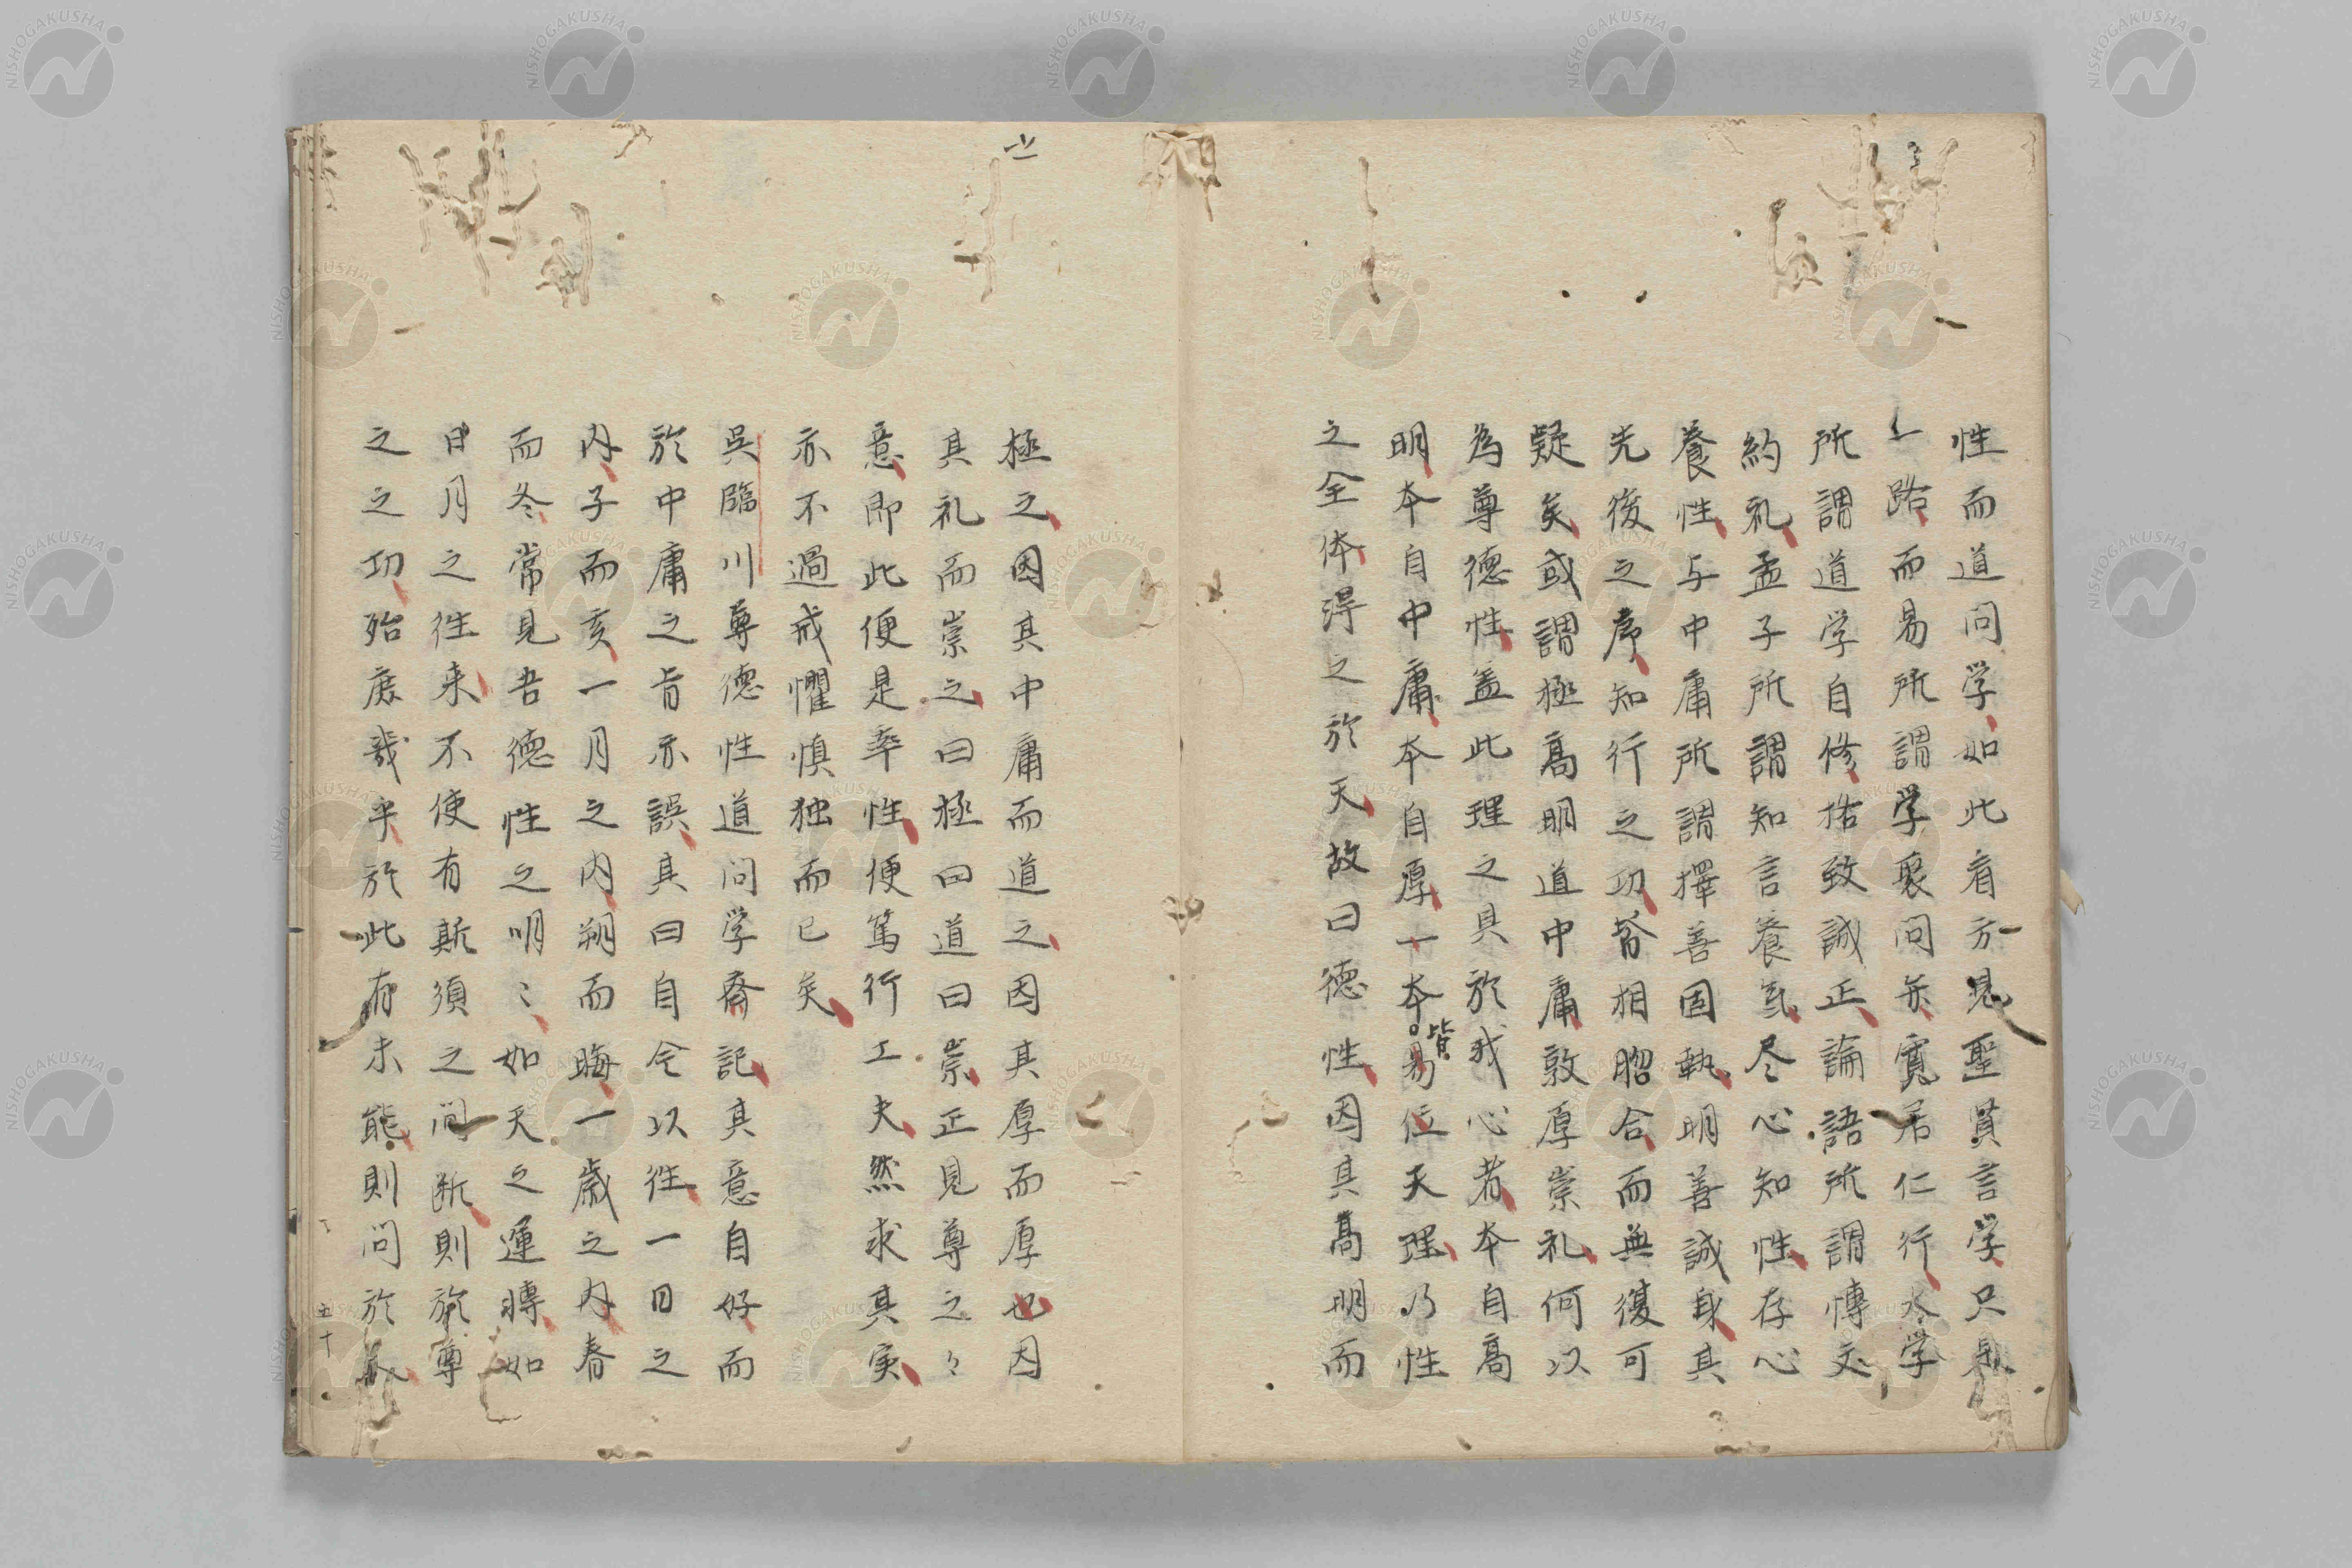 性而道問学如此看方見聖賢言学只是
一路而易所謂学聚問弁寛居仁行大学
所謂道学自修括致誠正論語所謂博文
約礼孟子所謂知言養気尽心知性存心
養性与中庸所謂擇善固執明善誠身其
先後之序知行之功皆相脗合而無復可
疑矣或謂極高明道中庸敦厚崇礼何以
為尊德性盖此理之具於我心者本自高
明本自中庸本自厚一本皆易位天理乃性
之全体得之於天故曰德性因其高明而
極之因其中庸而道之因其厚而厚也因
其礼而崇之曰極曰道曰崇正見尊之〻
意即此便是率性便篤行工夫然求其実
亦不過戒懼慎独而已矣
呉臨川尊德性道問学斎記其意自好而
於中庸之旨亦誤其曰自今以往一日之
内子而亥一月之内朔而晦一歳之内春
而冬常見吾德性之明〻如天之運轉如
日月之往来不使有斯須之間断則於尊
之之功殆庶哉乎於此有未能則問於人
五十
NISHOGAKUSHA